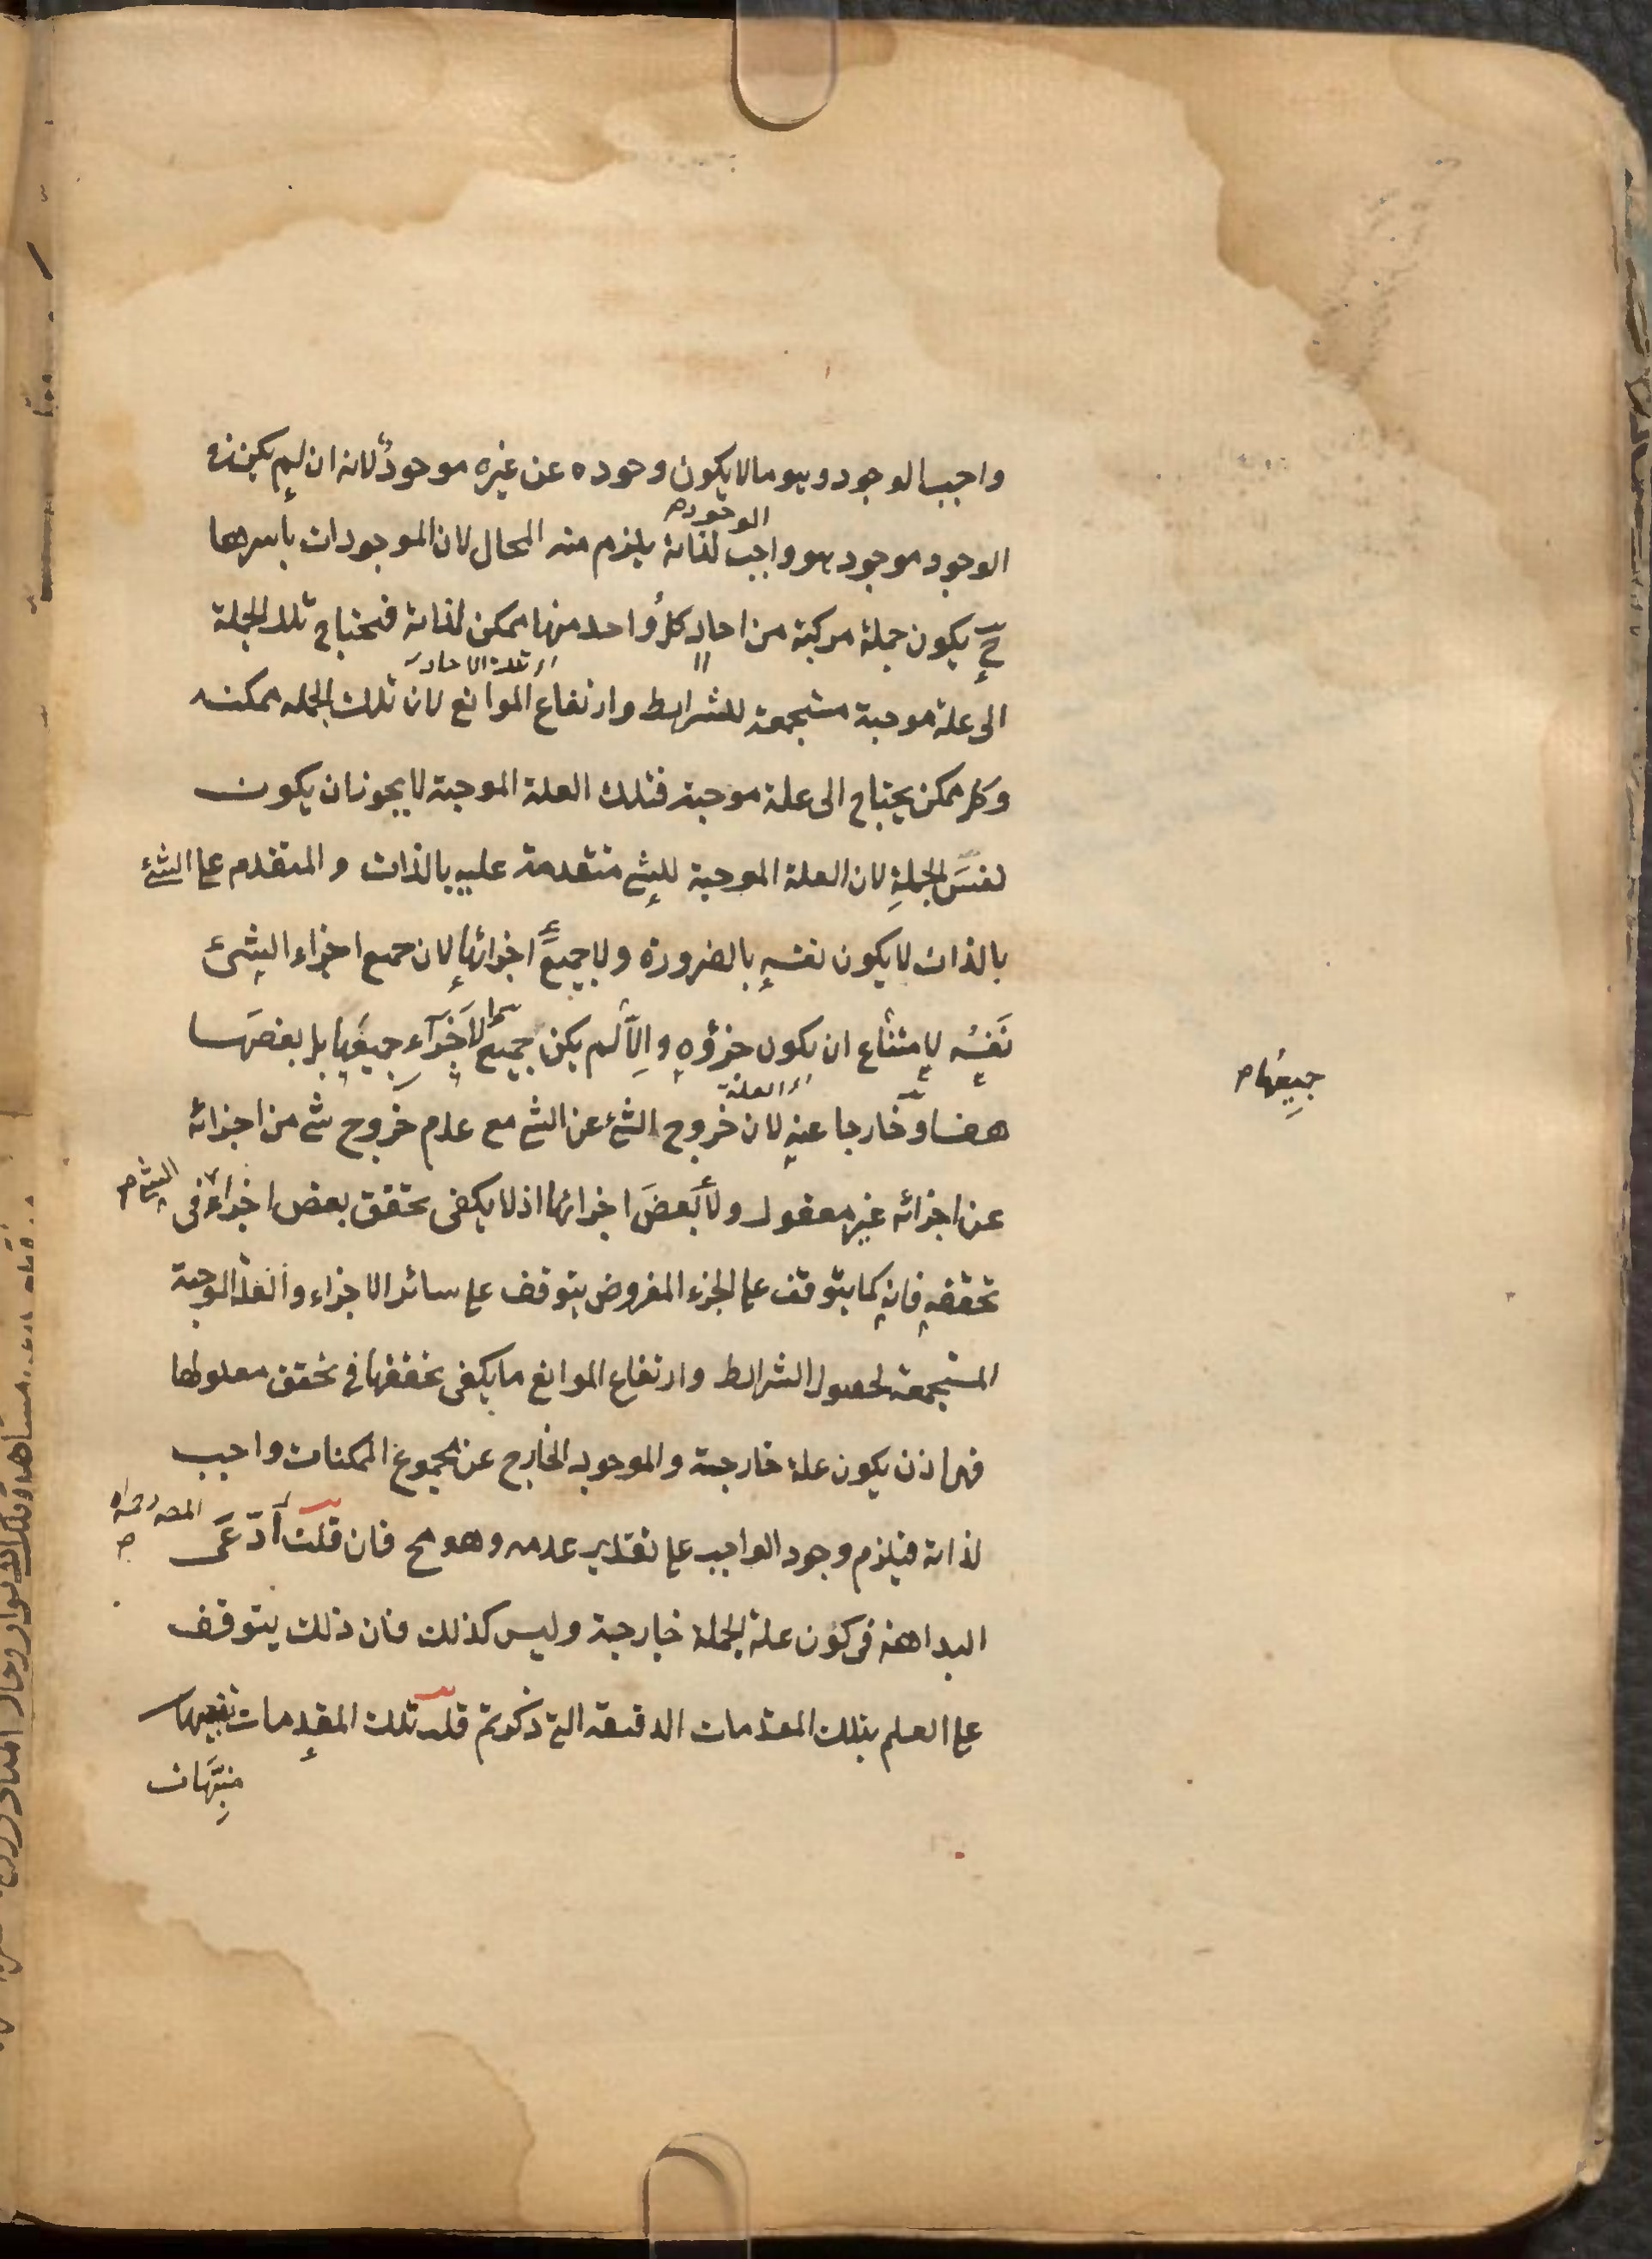 واجب الوجود وهو ما لا يكون وجوده عن غيره موجودٌ لانه ان لم يكن في
الوجود م
الوجود موجود هو واجب لذاته يلزم منه المحال لان الموجودات باسرها
ح يكون جملة مركبة من احاد كل واحد منها ممكن لذاته فيحتاج تلك الجملة
اى تلك الاحاد
الى علة موجبة مستجمعة للشرايط وارتفاع الموانع لان تلك الجمله ممكنه
وكل ممكن يحتاج الى علة موجبة فتلك العلة الموجبة لا يجوز ان يكون
نفسَ الجملةِ لان العلة الموجبة للشئ متقدمة عليه بالذات والمتقدم على الشئ
بالذات لا يكون نفسه بالضرورة ولا جميعَ اجزائها لان جميع اجزاء الشئ
نَفسُه لامتناع ان يكون جزؤه والّا لم يكن جميع الاجزآء جميعَها بل بعضَها
جميعها م
اى العلة
هف او خارجا عنه لان خروج الشئ عن الشئ مع عدم خروج شئ من اجزائه
عن اجزائه غير معقول ولا بَعضَ اجزائها اذ لا يكفى تحقق بعض اجزاء فى
الشئ م
تحققه فانه كما يتوقف على الجزء المفروض يتوقف على سائر الاجزاء والعلة الموجبة
المستجمعة لحصول الشرايط وارتفاع الموانع ما يكفى تحققها فى تحقق معلولها
فهى اذن يكون علة خارجة والموجود الخارج عن مجموع الممكنات واجب
لذاته فيلزم وجود الواجب على تقدير عدمه وهو مح فان قلت ادّعَى
المصـ
البداهة فى كون علة الجملة خارجة وليس كذلك فان ذلك يتوقف
على العلم بتلك المقدمات الدقيقة التى ذكرتم قلت تلك المقدمات
منبِّهات